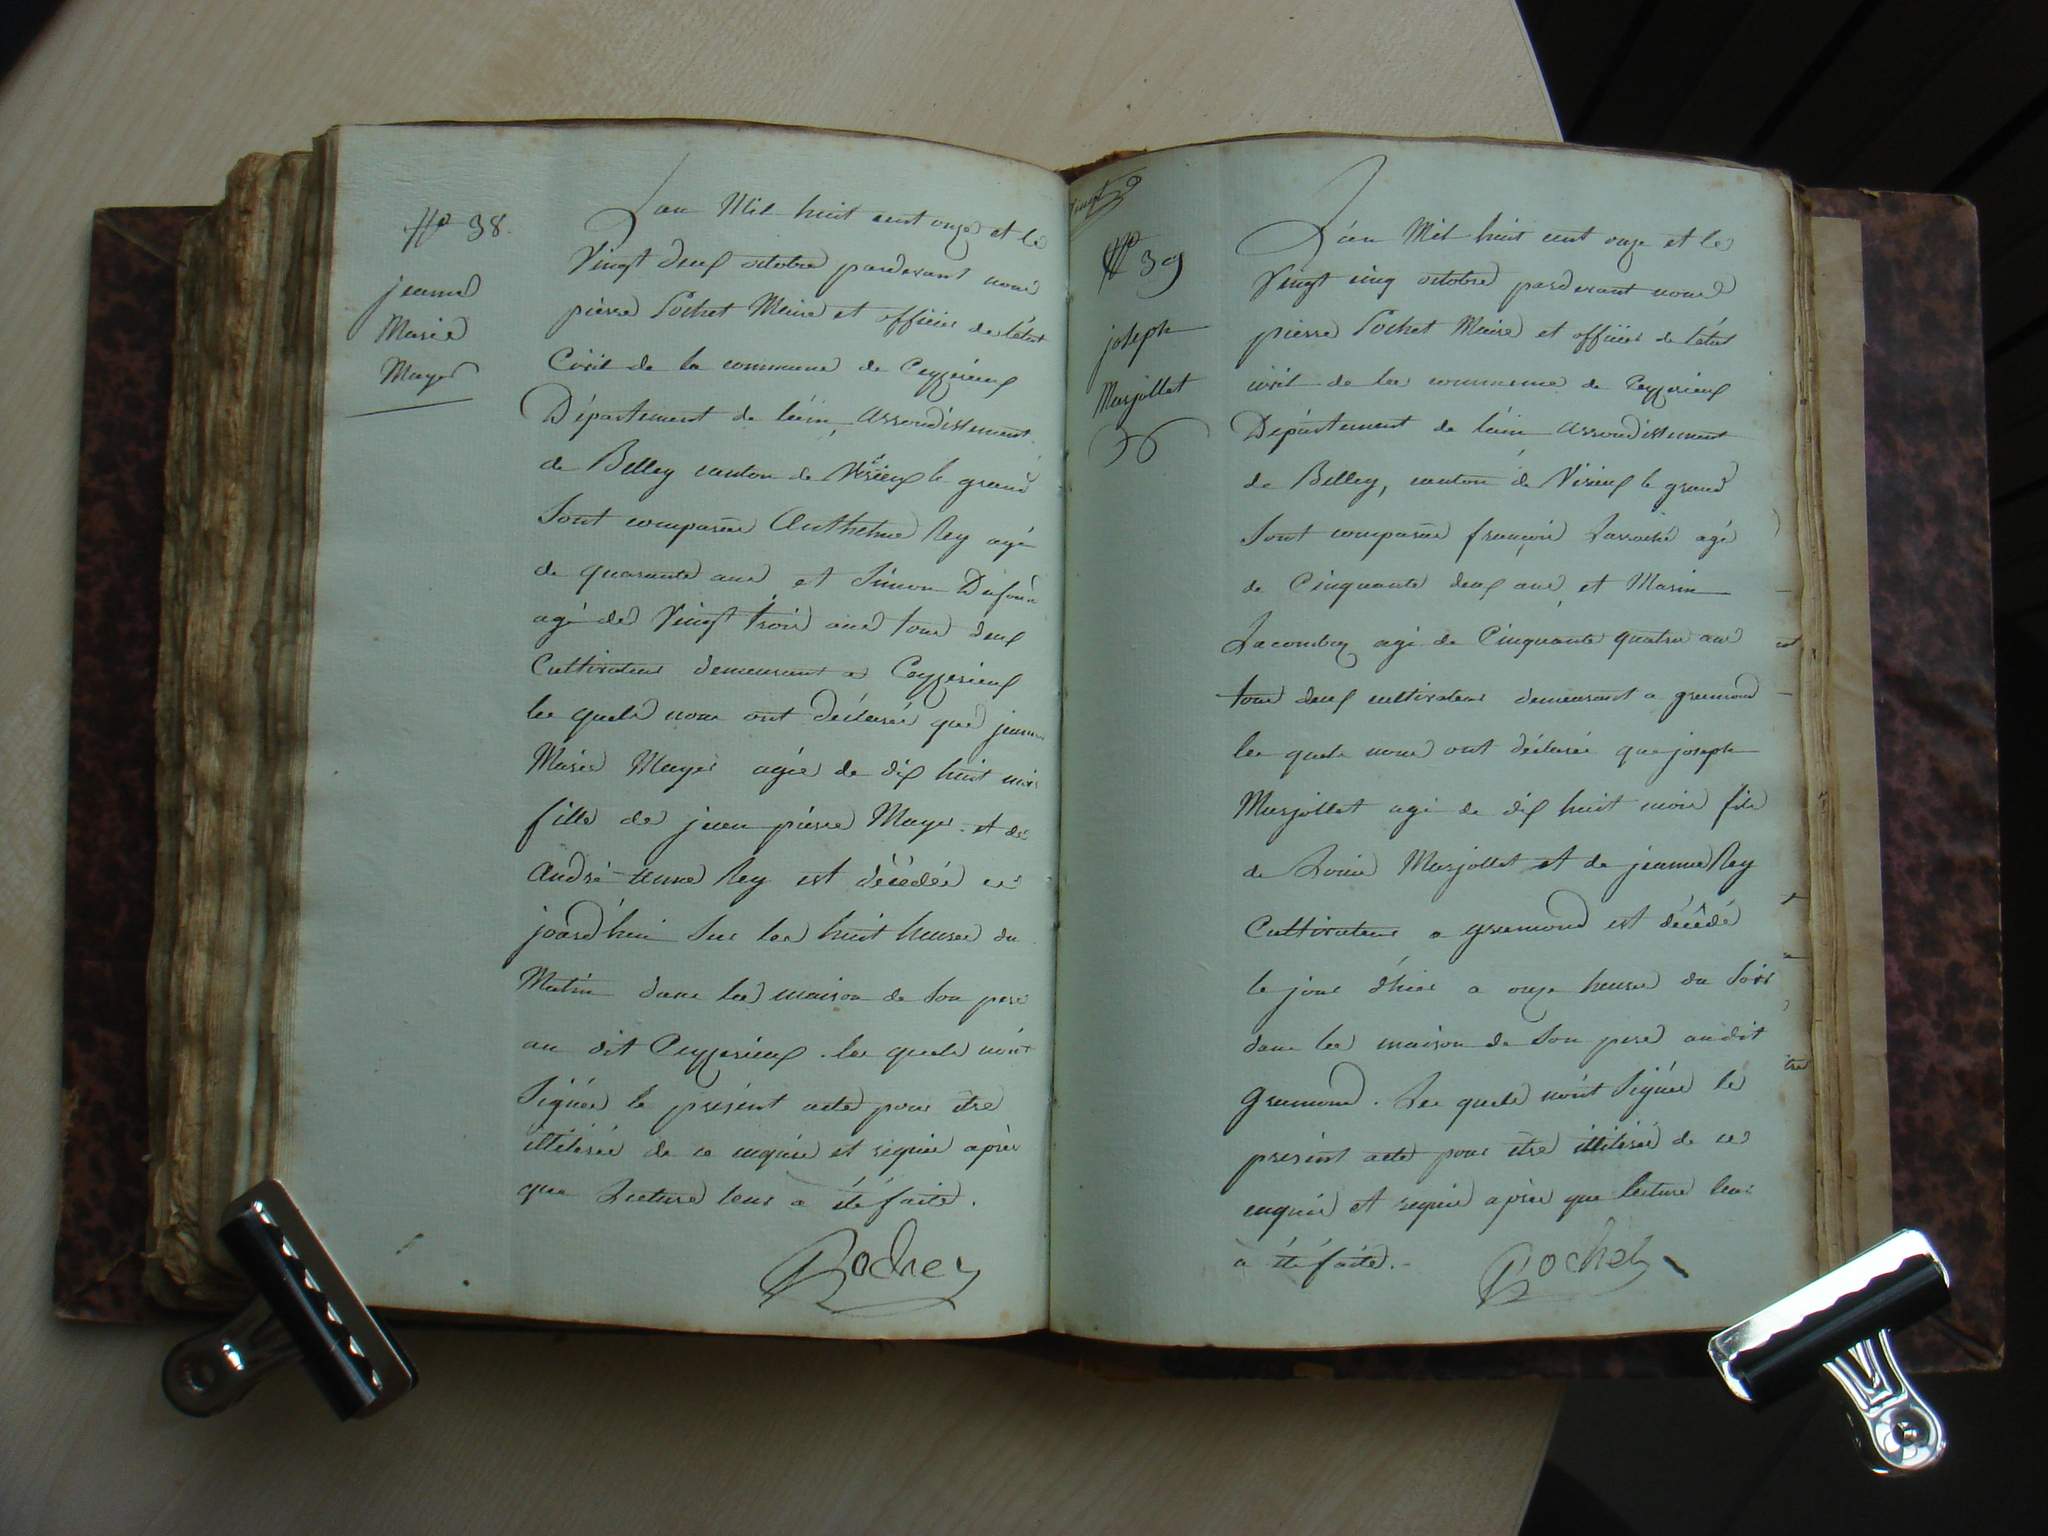 N° 38.
jeanne
Marie
Mayer
L'an Mil huit cent onze et le
Vingt deux octobre pardevant nous
pierre Pochet Maire et officier de l'état
Civil de la commune de Ceyzerieux
Département de l'ain, arrondissement
de Belley canton de Virieux le grand
Sont comparus Anthelme Rey agé
de quarante ans et Simon Dufour
agé de Vingt trois ans tous deux
Cultivateurs demeurant a Ceyzerieux
les quels nous ont déclarés que jeanne
Marie Mayer agée de dix huit mois
fille de jean pierre Mayer et de
André-anne Rey est décédée ce
jourd'hui Sur les huit heures du
Matin dans la maison de Son pere
au dit Ceyzerieux. les quels n'ont
Signés le présent acte pour être
illitérés de ce enquis et requis après
que Lecture leur a été faite.
Pochet
vingt
N° 39
joseph
Marjollet
L'an Mil huit cent onze et le
Vingt cinq octobre pardevant nous
pierre Pochet Maire et officier de l'état
civil de la commune de Ceyzerieux
Département de l'ain arrondissement
de Belley, canton de Virieux le grand
Sont comparus françois agé
de Cinquante deux ans, et Marin
agé de Cinquante quatre ans
tous deux cultivateurs demeurant a gremond
les quels nous ont déclarés que joseph
Marjollet agé de dix huit mois fils
de Louis Marjollet et de jeanne Rey
Cultivateurs a gremond est décédé
le jour d'hier a onze heures du Soir
dans la maison de Son pere audit
gremond. Les quels n'ont Signés le
présent acte pour être illitérés de ce
enquis et requis après que lecture leur
a été faite.
Pochet